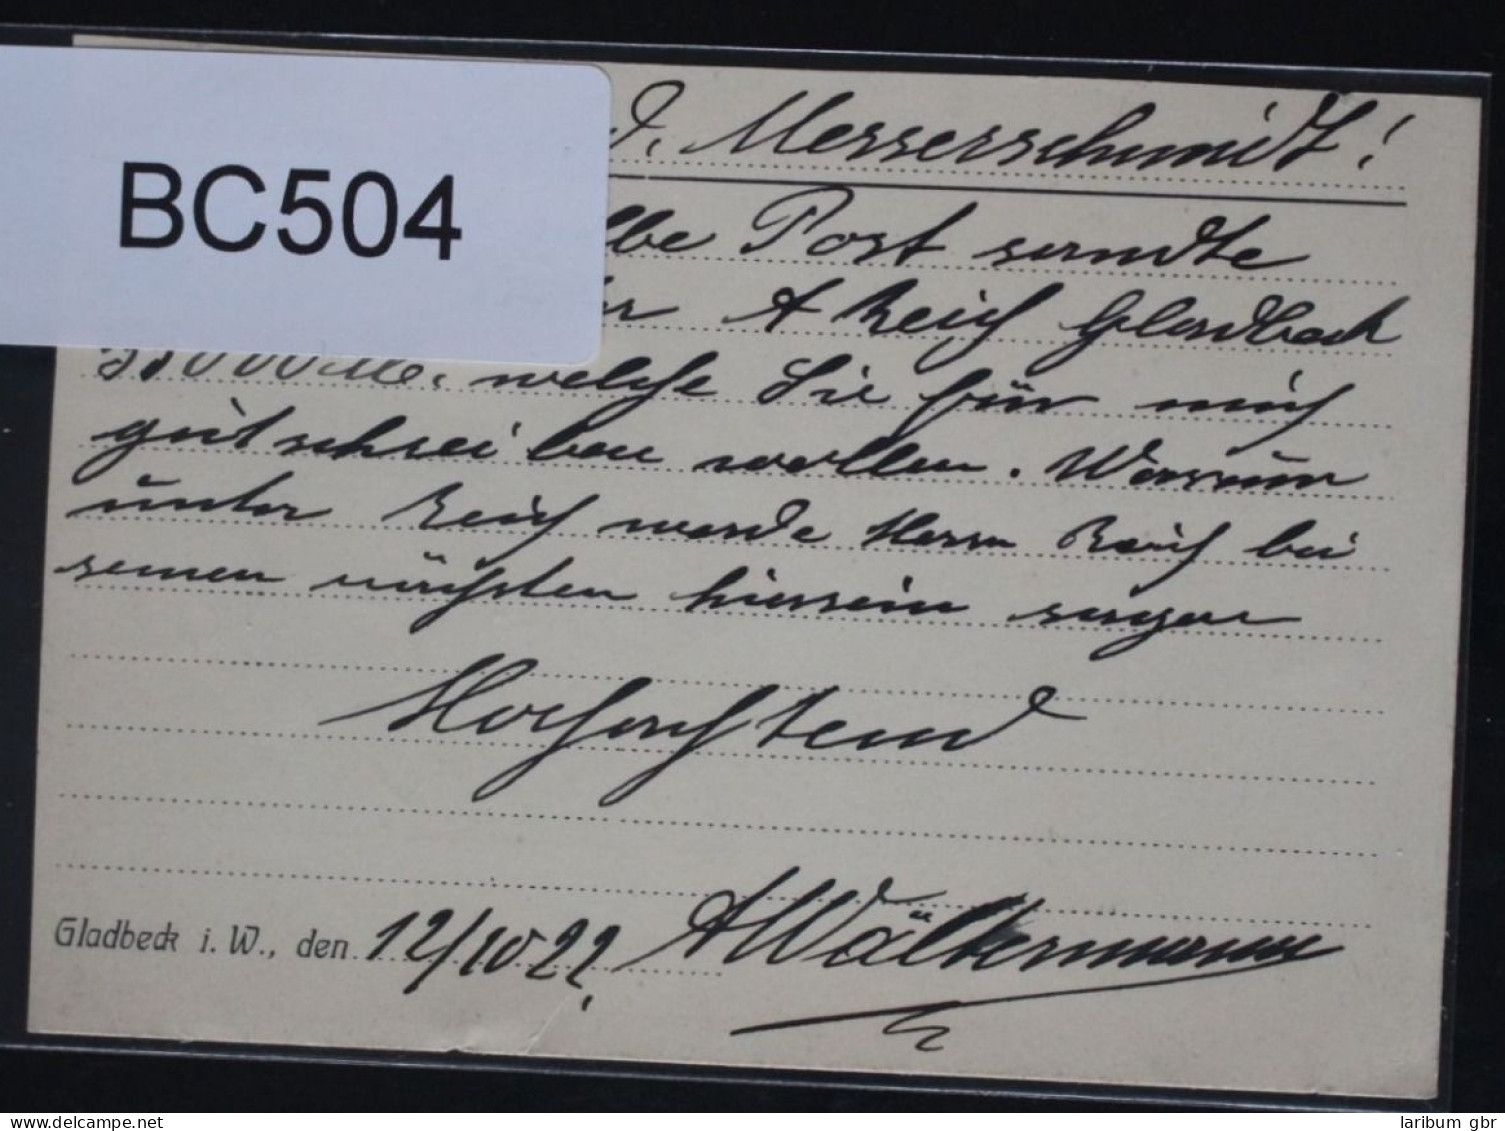 BC504
d. Messerschmidt!
lbe Post sandte
A Reich Gladbeck
000 M. welche Sie für mich
gutschreiben wollen. Warum
unter Reich werde Herrn Reich bei
seinen nächsten hiersein sagen
Hochachtend
Gladbeck i. W., den 12/10 22. A Wältermann
laribum gbr